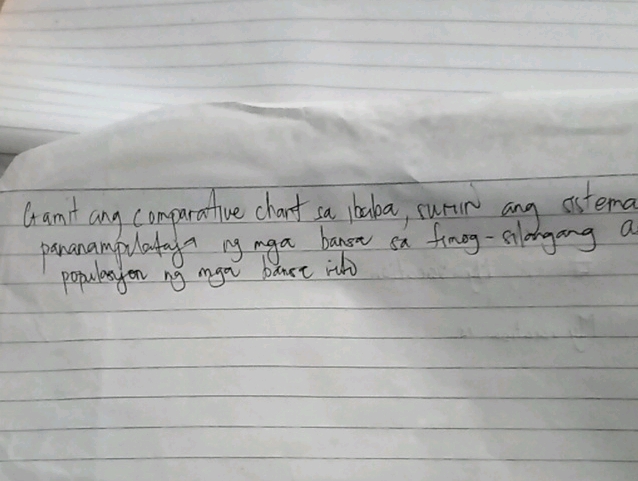 Gamit ang comparative chart sa ibaba, suriin ang sistema
pananampalataya ng mga bansa sa timog-silangang a
populasyon ng mga bansa